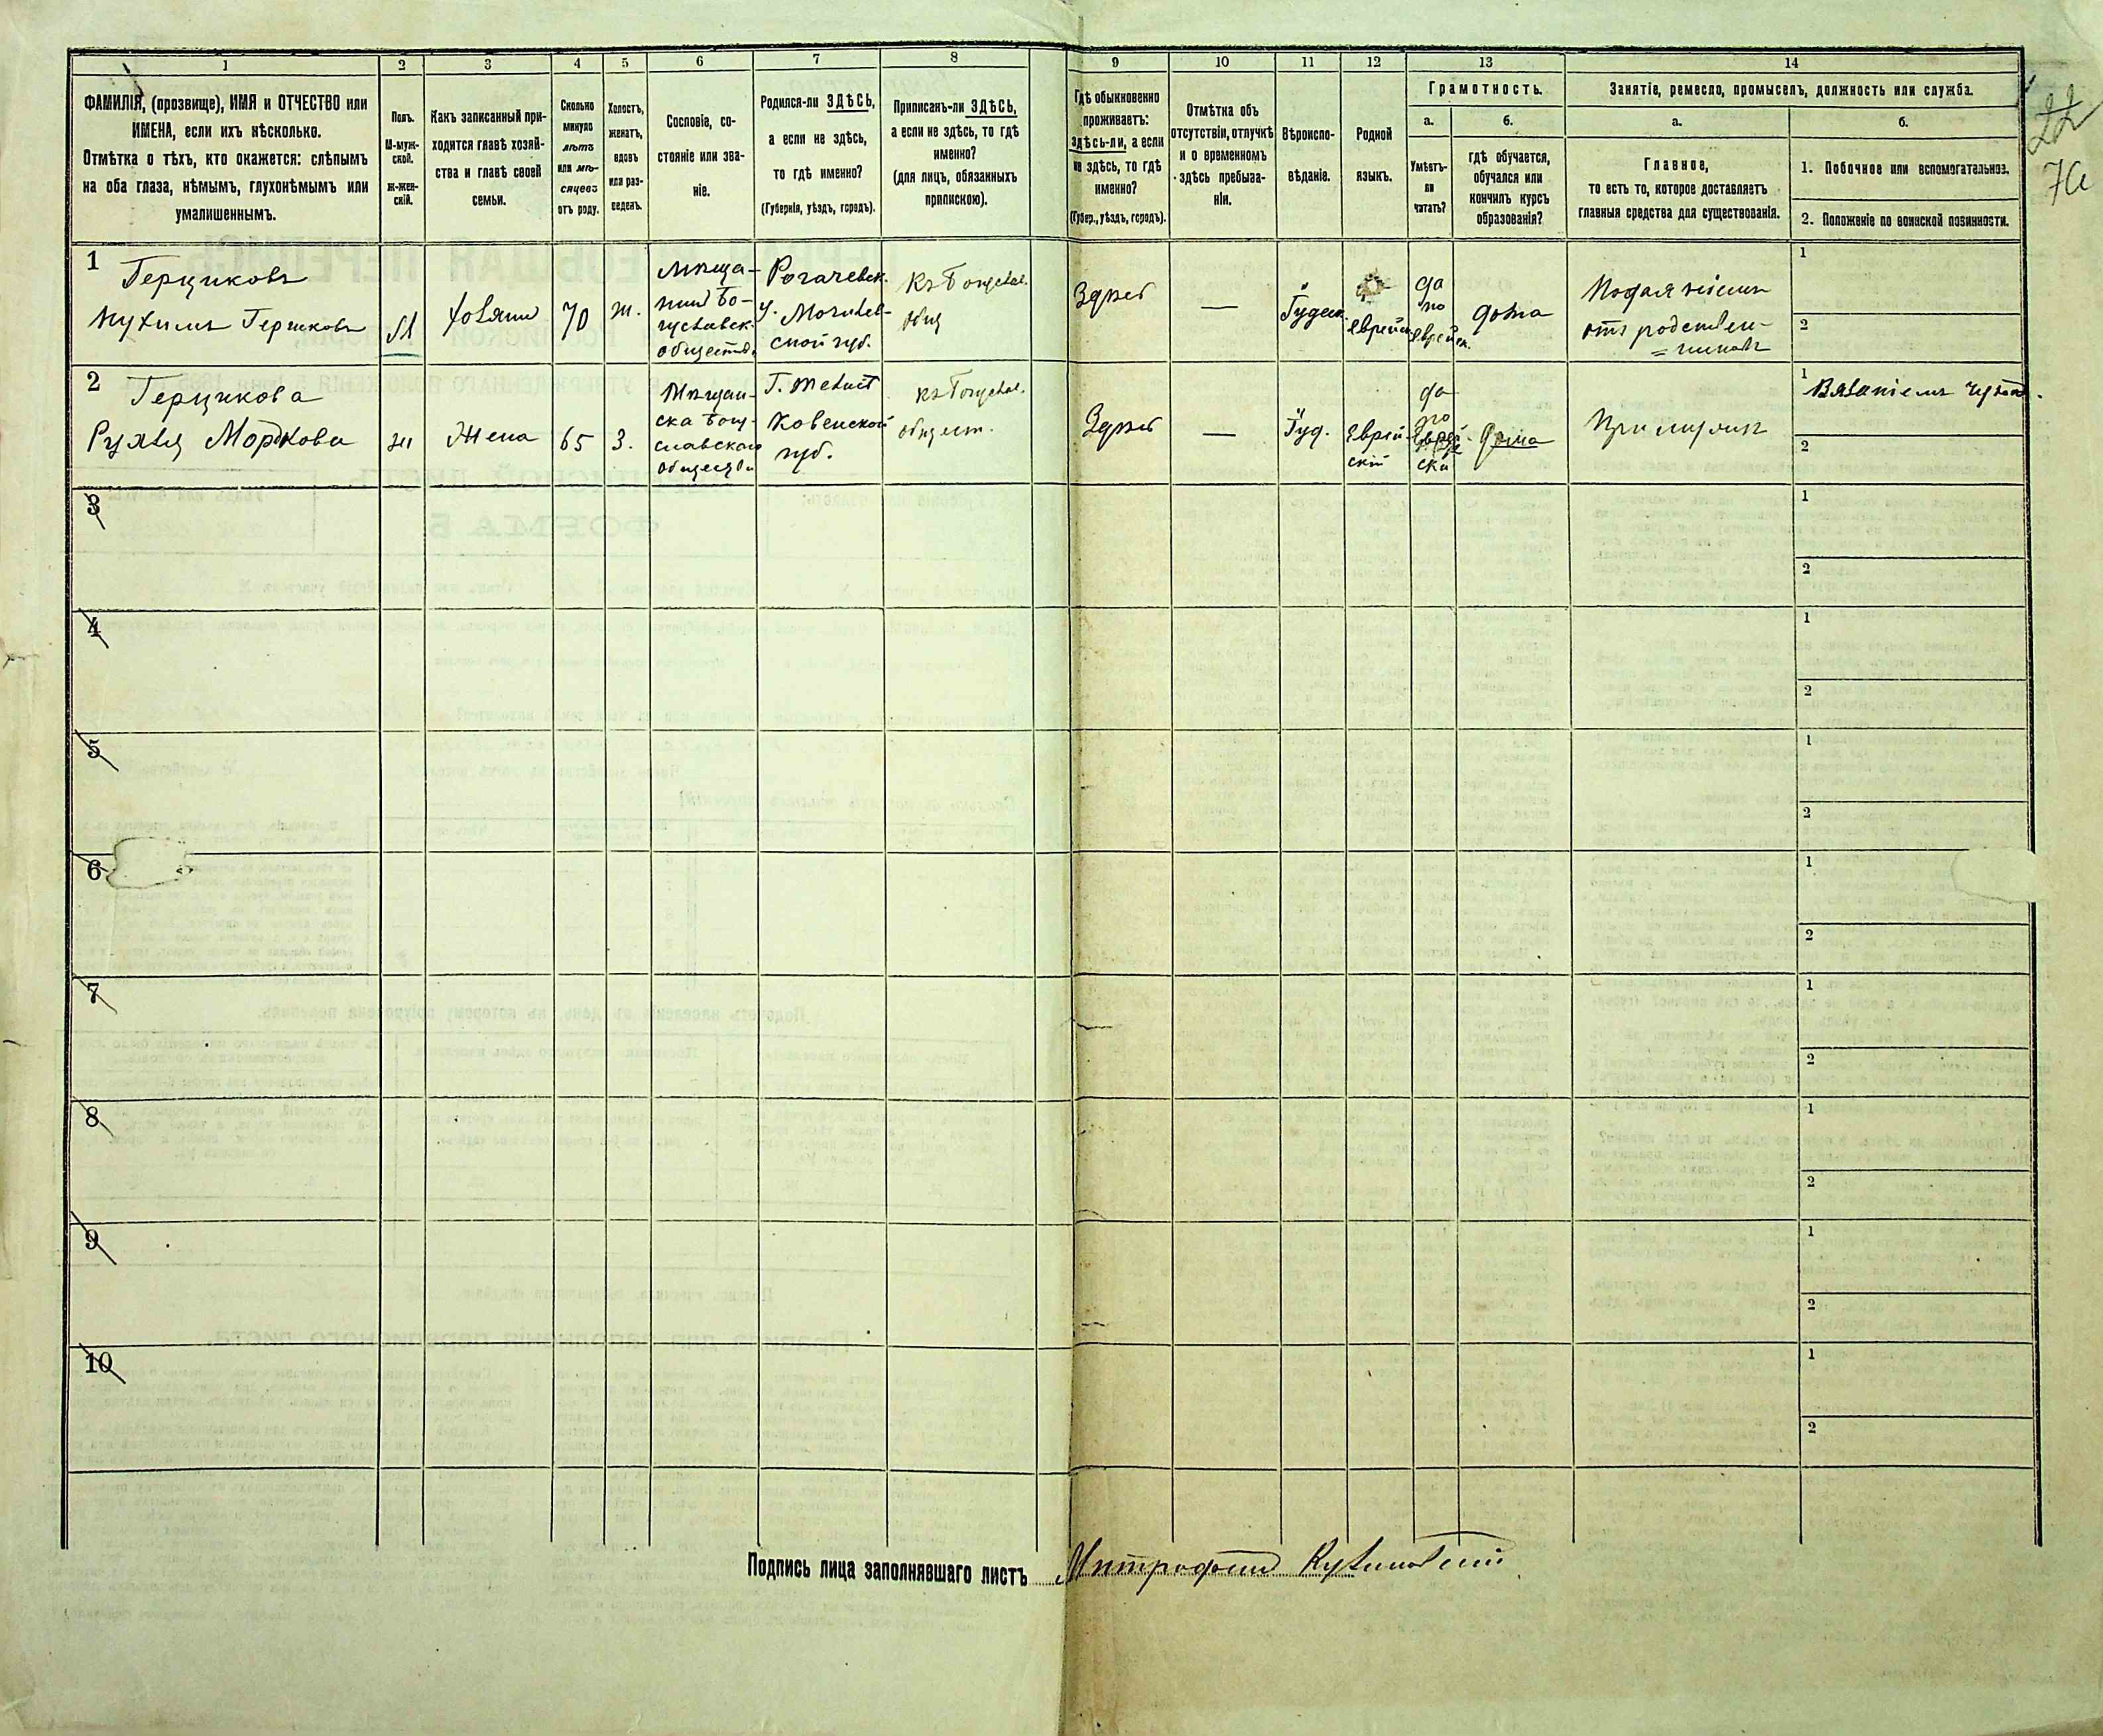 1 2 3 4 5 6 7 8 9 10 11 12 13 14
ФАМИЛІЯ, (прозвище), ИМЯ и ОТЧЕСТВО или
ИМЕНА, если ихъ нѣсколько.
Отмѣтка о тѣхъ, кто окажется: слѣпымъ
на оба глаза, нѣмымъ, глухонѣмымъ или
умалишеннымъ.
Полъ.
М-муж-
ской.
Ж-жен-
скій.
Какъ записанный при-
ходится главѣ хозяй-
ства и главѣ своей
семьи.
Сколько
минуло
лѣтъ
или мѣ-
сяцевъ
отъ роду.
Холостъ,
женатъ,
вдовъ
или раз-
веденъ.
Сословіе, со-
стояніе или зва-
ніе.
Родился-ли ЗДѢСЬ,
а если не здѣсь,
то гдѣ именно?
(Губернія, уѣздъ, городъ).
Приписанъ-ли ЗДѢСЬ,
а если не здѣсь, то гдѣ
именно?
(для лицъ, обязанныхъ
припискою).
Гдѣ обыкновенно
проживаетъ:
здѣсь-ли, а если
не здѣсь, то гдѣ
именно?
(Губер., уѣздъ, городъ).
Отмѣтка объ
отсутствіи, отлучкѣ
и о временномъ
здѣсь пребыва-
ніи.
Вѣроиспо-
вѣданіе.
Родной
языкъ.
Грамотность.
а.
Умѣетъ-
ли
читать?
б.
гдѣ обучается,
обучался или
кончилъ курсъ
образованія?
Занятіе, ремесло, промыселъ, должность или служба.
а.
Главное,
то есть то, которое доставляетъ
главныя средства для существованія.
б.
1. Побочное или вспомогательное.
2. Положеніе по воинской повинности.
22
1
Герциковъ
Гершковъ
М
хозяинъ
70
ж.
Мѣща-
нинъ Бо-
гуславск.
общества
Рогачевск.
у. Могилев-
ской губ.
Къ Богуслав.
общ
Здѣсь
—
Іудей.
еврейск.
да
по
еврейск.
дома
Подаяніемъ
отъ родствен-
=никовъ
1
2
2
Герцикова
Мордкова
ж
Жена
65
З.
Мѣщан-
ска Богу-
славскаго
общества
Ковенской
губ.
къ Богуслав.
общест.
Здѣсь
—
Іуд.
Еврей-
скій
да
по
Еврей-
ски
дома
При мужѣ
1
Вязаніемъ
2
3
1
2
4
1
2
5
1
2
6
1
2
7
1
2
8
1
2
9
1
2
10
1
2
Подпись лица заполнявшаго листъ Митрофанъ